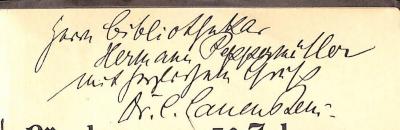 Herrn Bibliothekar
Hermann Peppermüller
mit herzlichem Gruß
Dr. C.